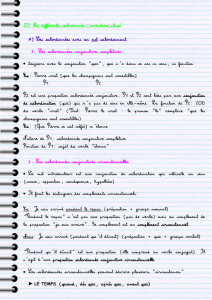 II) Les différentes subordonnées : caractère
A) Les subordonnées avec un mot subordonnant
1. Les subordonnées conjonctives complétives
• Toujours avec la conjonction "que", qui n'a dans ce cas ni sens, ni fonction
Ex: Pierre croit (que les champignons sont comestibles)
P1 P2
P2 est une proposition subordonnée conjonctive. P1 et P2 sont liées par une conjonction
de subordination (que) qui n'a pas de sens en elle-même. La fonction de P2: COD
du verbe "croit" (Tout: Pierre croit : le groupe "le" remplace "que les
champignons sont comestibles")
Ex: (Que Pierre se soit méfié) m'étonne
Nature de P2: subordonnée conjonctive complétive
Fonction de P2: sujet du verbe "étonne"
2. Les subordonnées conjonctives circonstancielles
• Le mot introducteur est une conjonction de subordination qui véhicule un sens
(cause, opposition, conséquence, hypothèse)
• Il faut les distinguer des compléments circonstanciels
Ex: Je suis arrivé pendant le repas (préposition + groupe nominal)
"Pendant le repas" n'est pas une proposition (pas de verbe) mais un complément de
la proposition "je suis arrivé". Un complément est un complément circonstanciel.
Mais: Je suis arrivé (pendant qu'il dînait) (préposition + que + groupe verbal)
"Pendant qu'il dînait" est une proposition (elle comprend un verbe conjugué). Il
s'agit d'une proposition subordonnée conjonctive circonstancielle
• Les subordonnées circonstancielles peuvent décrire plusieurs "circonstances"
► LE TEMPS (quand, dès que, après que, avant que)